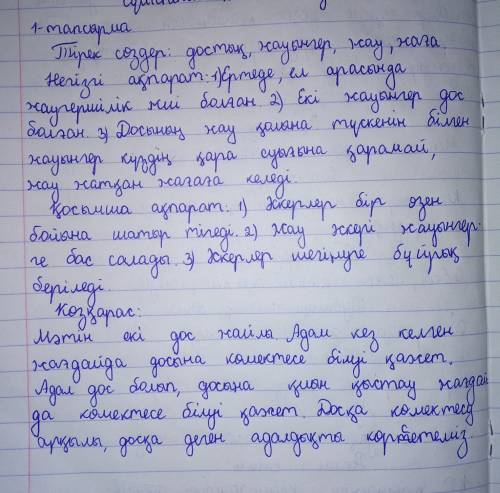 1-тапсырма
Тірек сөздер: достық, жауынгер, жау, жаға.
Негізгі ақпарат: 1) Ертеде, ел арасында
жаугершілік жиі болған. 2) Екі жауынгер дос
болған. 3) Досының жау қолына түскенін білген
жауынгер күздің қара суығына қарамай,
жау жатқан жағаға келеді.
Қосымша ақпарат: 1) Әскерлер бір өзен
бойына шатыр тігеді. 2) Жау әскері жауынгер-
ге бас салады. 3) Әскерлер шегінуге бұйрық
беріледі.
Көзқарас:
Мәтін екі дос жайлы. Адам кез келген
жағдайда досына көмектесе білуі қажет.
Адал дос болып, досына қиын қыстау жағдай
да көмектесе білуі қажет. Досқа көмектесу
арқылы, досқа деген адалдықты көрсетеміз.